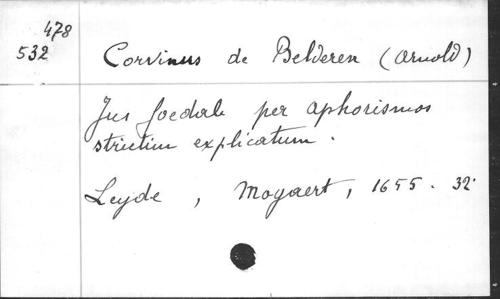 478
532
Corvinus de Belderen (Arnold)
Jus foedale per aphorismos
strictim explicatum.
Leyde, Moyaert, 1655. 32°